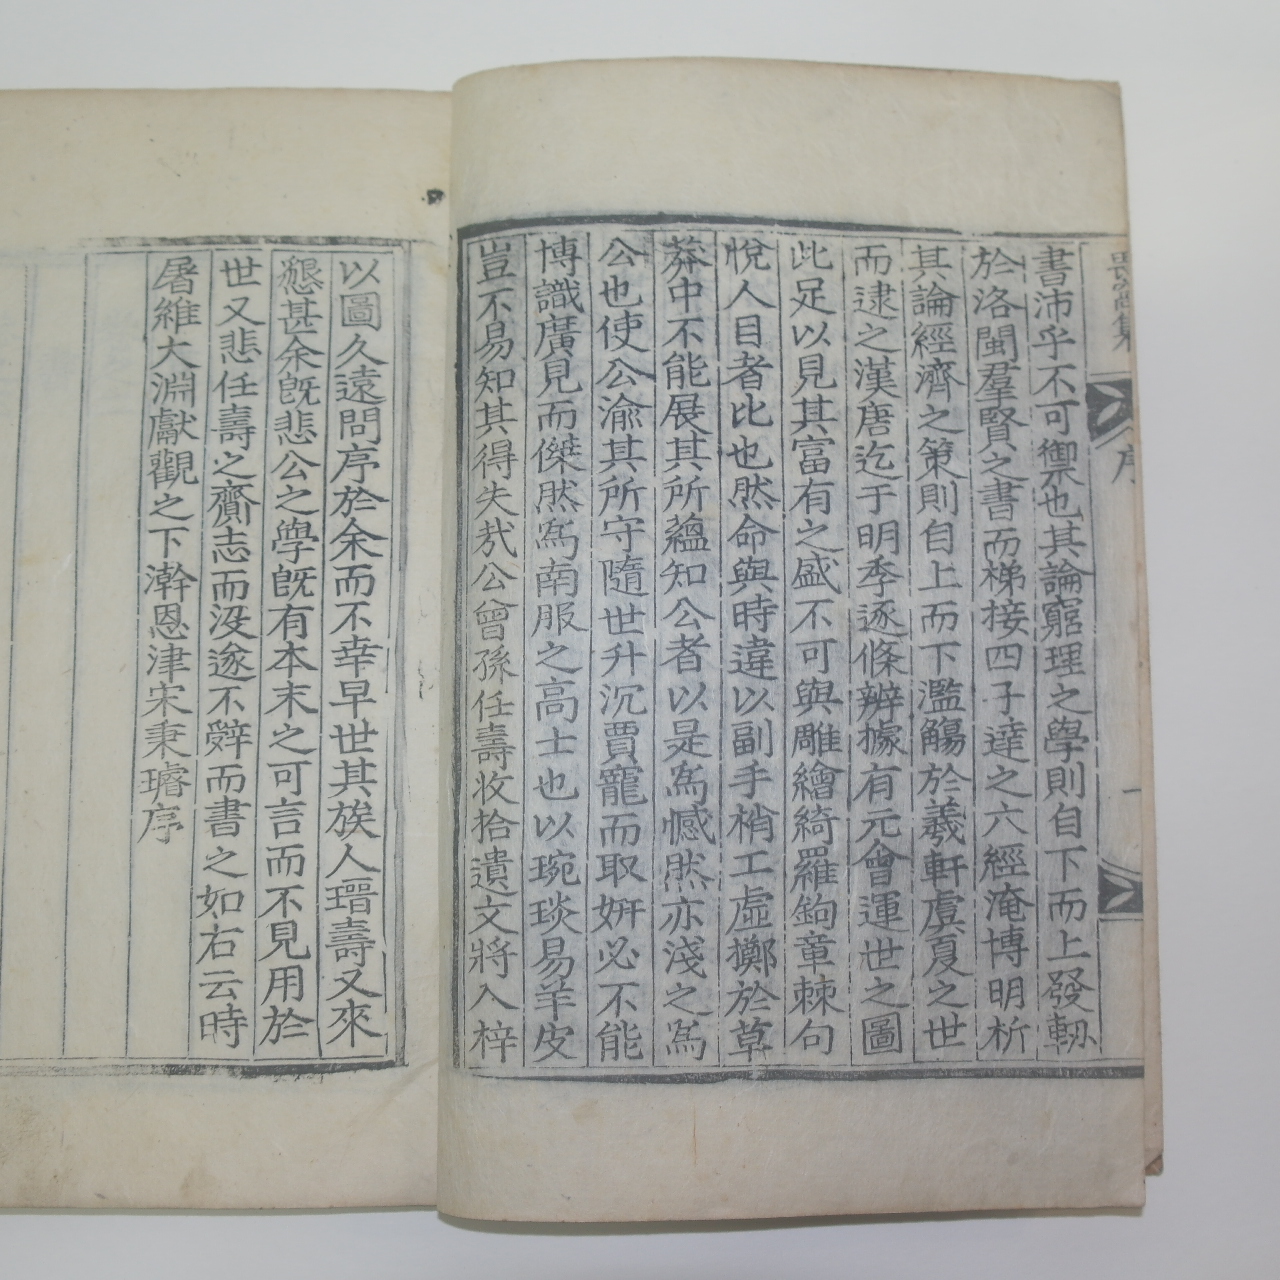 書沛乎不可禦也其論窮理之學則自下而上發軔
於洛閩羣賢之書而梯接四子達之六經淹博明析
其論經濟之策則自上而下濫觴於羲軒虞夏之世
而逮之漢唐迄于明季逐條辨據有元會運世之圖
此足以見其富有之盛不可與雕繪綺羅鉤章棘句
悅人目者比也然命與時違以副手梢工虛擲於草
莽中不能展其所蘊知公者以是爲憾然亦淺之爲
公也使公渝其所守隨世升沉賈寵而取妍必不能
博識廣見而傑然爲南服之高士也以琬琰易羊皮
豈不易知其得失哉公曾孫任壽收拾遺文將入梓
以圖久遠問序於余而不幸早世其族人瑨壽又來
懇甚余旣悲公之學旣有本末之可言而不見用於
世又悲任壽之齎志而沒遂不辭而書之如右云時
屠維大淵獻觀之下澣恩津宋秉璿序
序
一